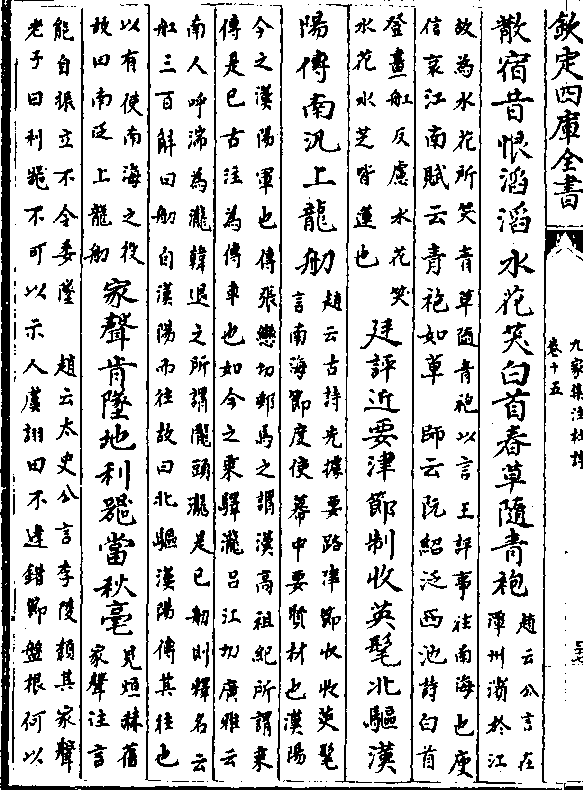 欽定四庫全書
九家集注杜詩
卷十五
散宿昔恨滔滔水花笑白首春草隨青袍趙云公言在潭州濱於江
故為水花所笑青草隨青袍以言王評事往南海也庾
信哀江南賦云青袍如草師云阮紹泛西池詩白首
登畫舡反慮水花笑水花水芝皆蓮也廷評近要津節制收英髦北驅漢
陽傳南汎上瀧舠趙云古詩先據要路津節收收英髦言南海節度使幕中要賢材也漢陽
今之漢陽軍也傳張戀切郵馬之謂漢高祖紀所謂乗
傳是已古注為傳車也如今之乗驛瀧吕江切廣雅云
南人呼湍為瀧韓退之所謂瀧頭瀧是已舠則釋名云
舡三百斛曰舠自漢陽而往故曰北驅漢陽傳其往也
以有使南海之役故曰南泛上瀧舠家聲肯墜地利器當秋毫見烜赫舊家聲注言
能自振立不令委墜趙云太史公言李陵頽其家聲
老子曰利器不可以示人虞詡曰不逢錯節盤根何以